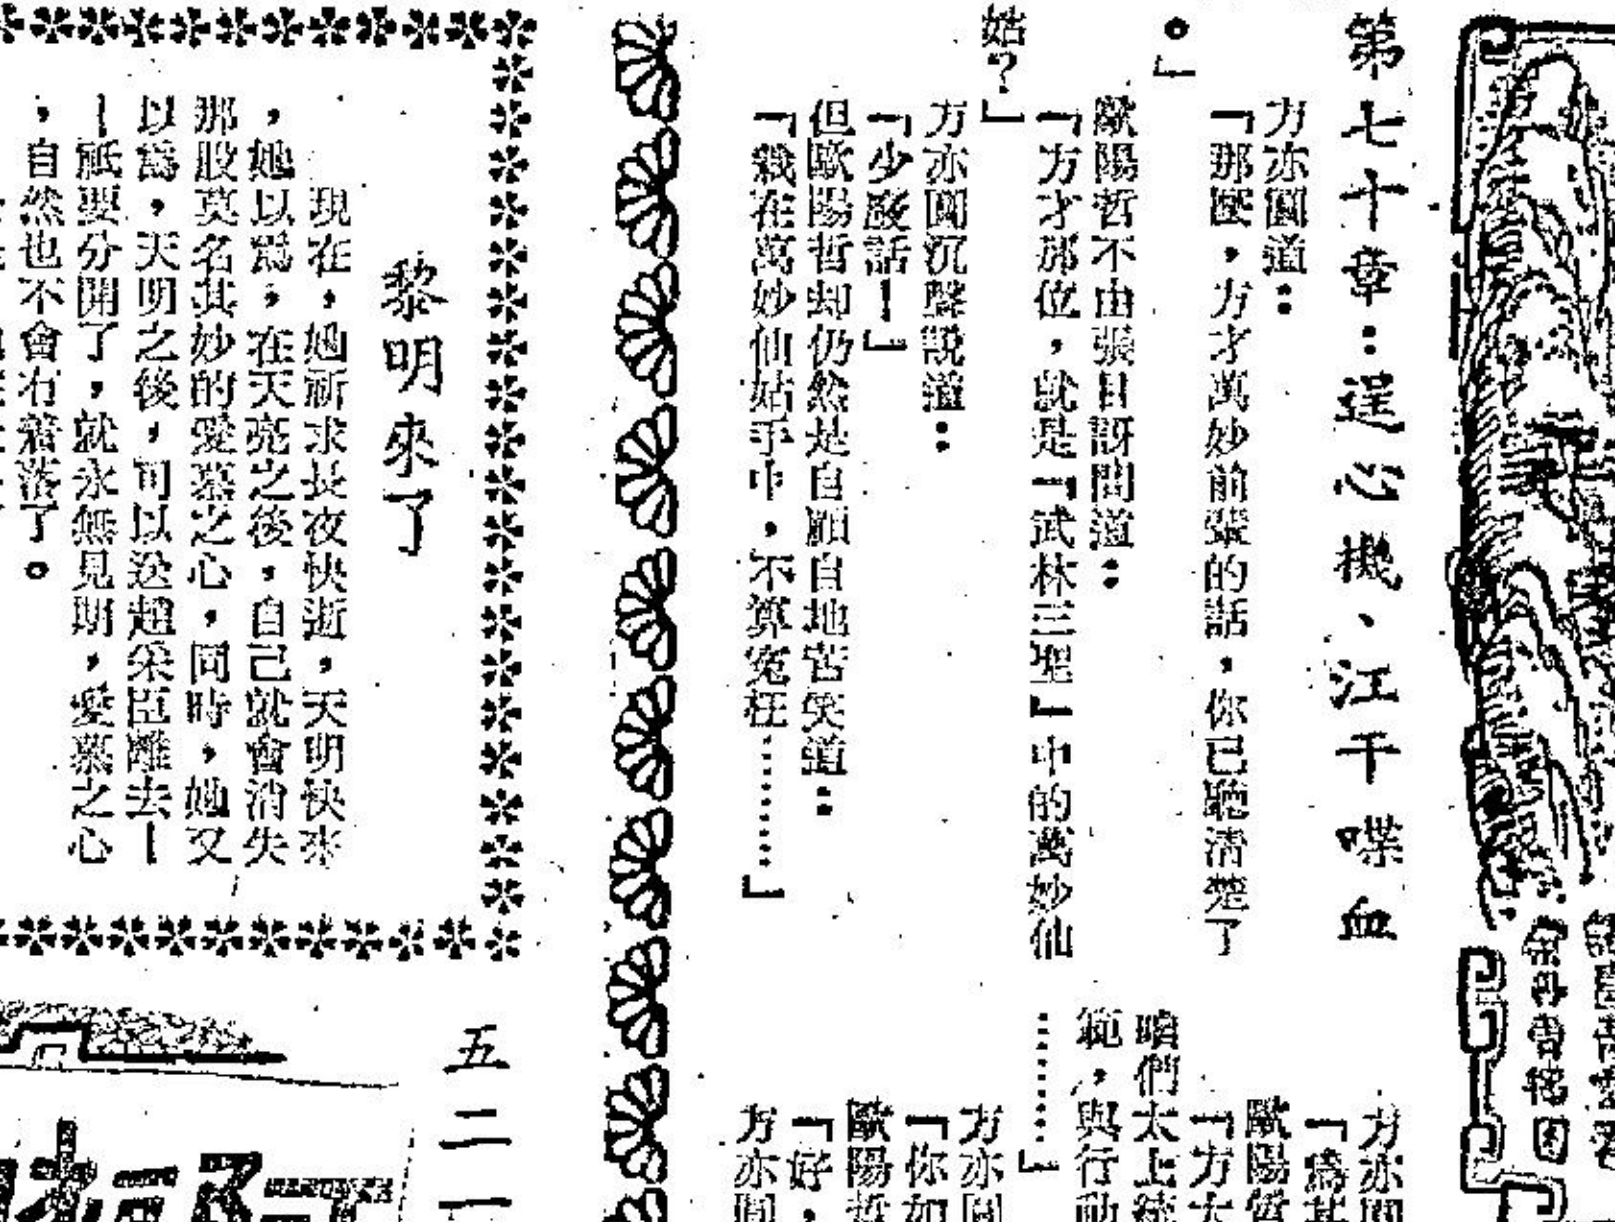 第七十章：逞心機、江干喋血
方亦圓道：
「那麼，方才萬妙前輩的話，你已聽清楚了
。」
歐陽哲不由張目訝問道：
「方才那位，就是『武林三聖』中的萬妙仙
姑？」
方亦圓沉聲說道：
「少廢話！」
但歐陽哲却仍然是自顧自地苦笑道：
「栽在萬妙仙姑手中，不算冤枉………」
方亦圓
「為甚
歐陽哲
「方大
咱們太上統
範，與行動
………」
方亦圓
「你如
歐陽哲
「好，
方亦圓
黎明來了
現在，她祈求長夜快逝，天明快來
，她以為，在天亮之後，自己就會消失
那股莫名其妙的愛慕之心，同時，她又
以為，天明之後，可以送趙采臣離去—
—祇要分開了，就永無見期，愛慕之心
，自然也不會有着落了。
五二一